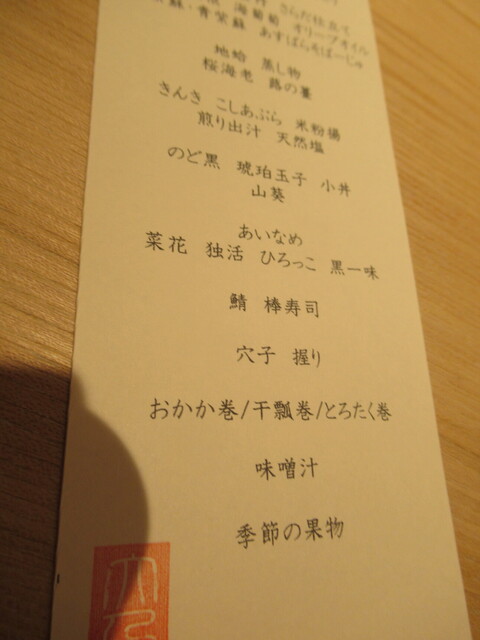 さらだ仕立て
海葡萄 オリーブオイル
蘇・青紫蘇 あすぱらそばーじゅ
地蛤 蒸し物
桜海老 蕗の薹
きんき こしあぶら 米粉揚
煎り出汁 天然塩
のど黒 琥珀玉子 小丼
山葵
あいなめ
菜花 独活 ひろっこ 黒一味
鯖 棒寿司
穴子 握り
おかか巻/干瓢巻/とろたく巻
味噌汁
季節の果物